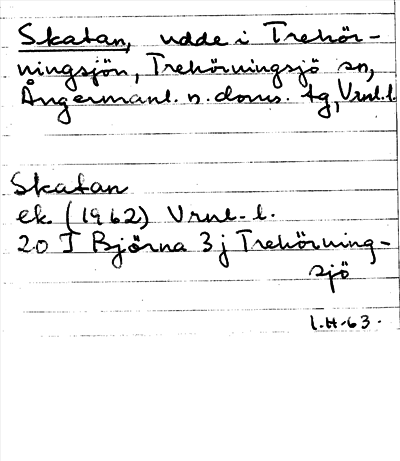 Skatan, udde i Trehör-
ningsjön, Trehörningsjö sn,
Ångermanl. n. doms. tg, Vrnl. l.
Skatan
ek. (1962) Vrnl. l.
20 I Björna 3 j Trehörning-
sjö
I.H-63.